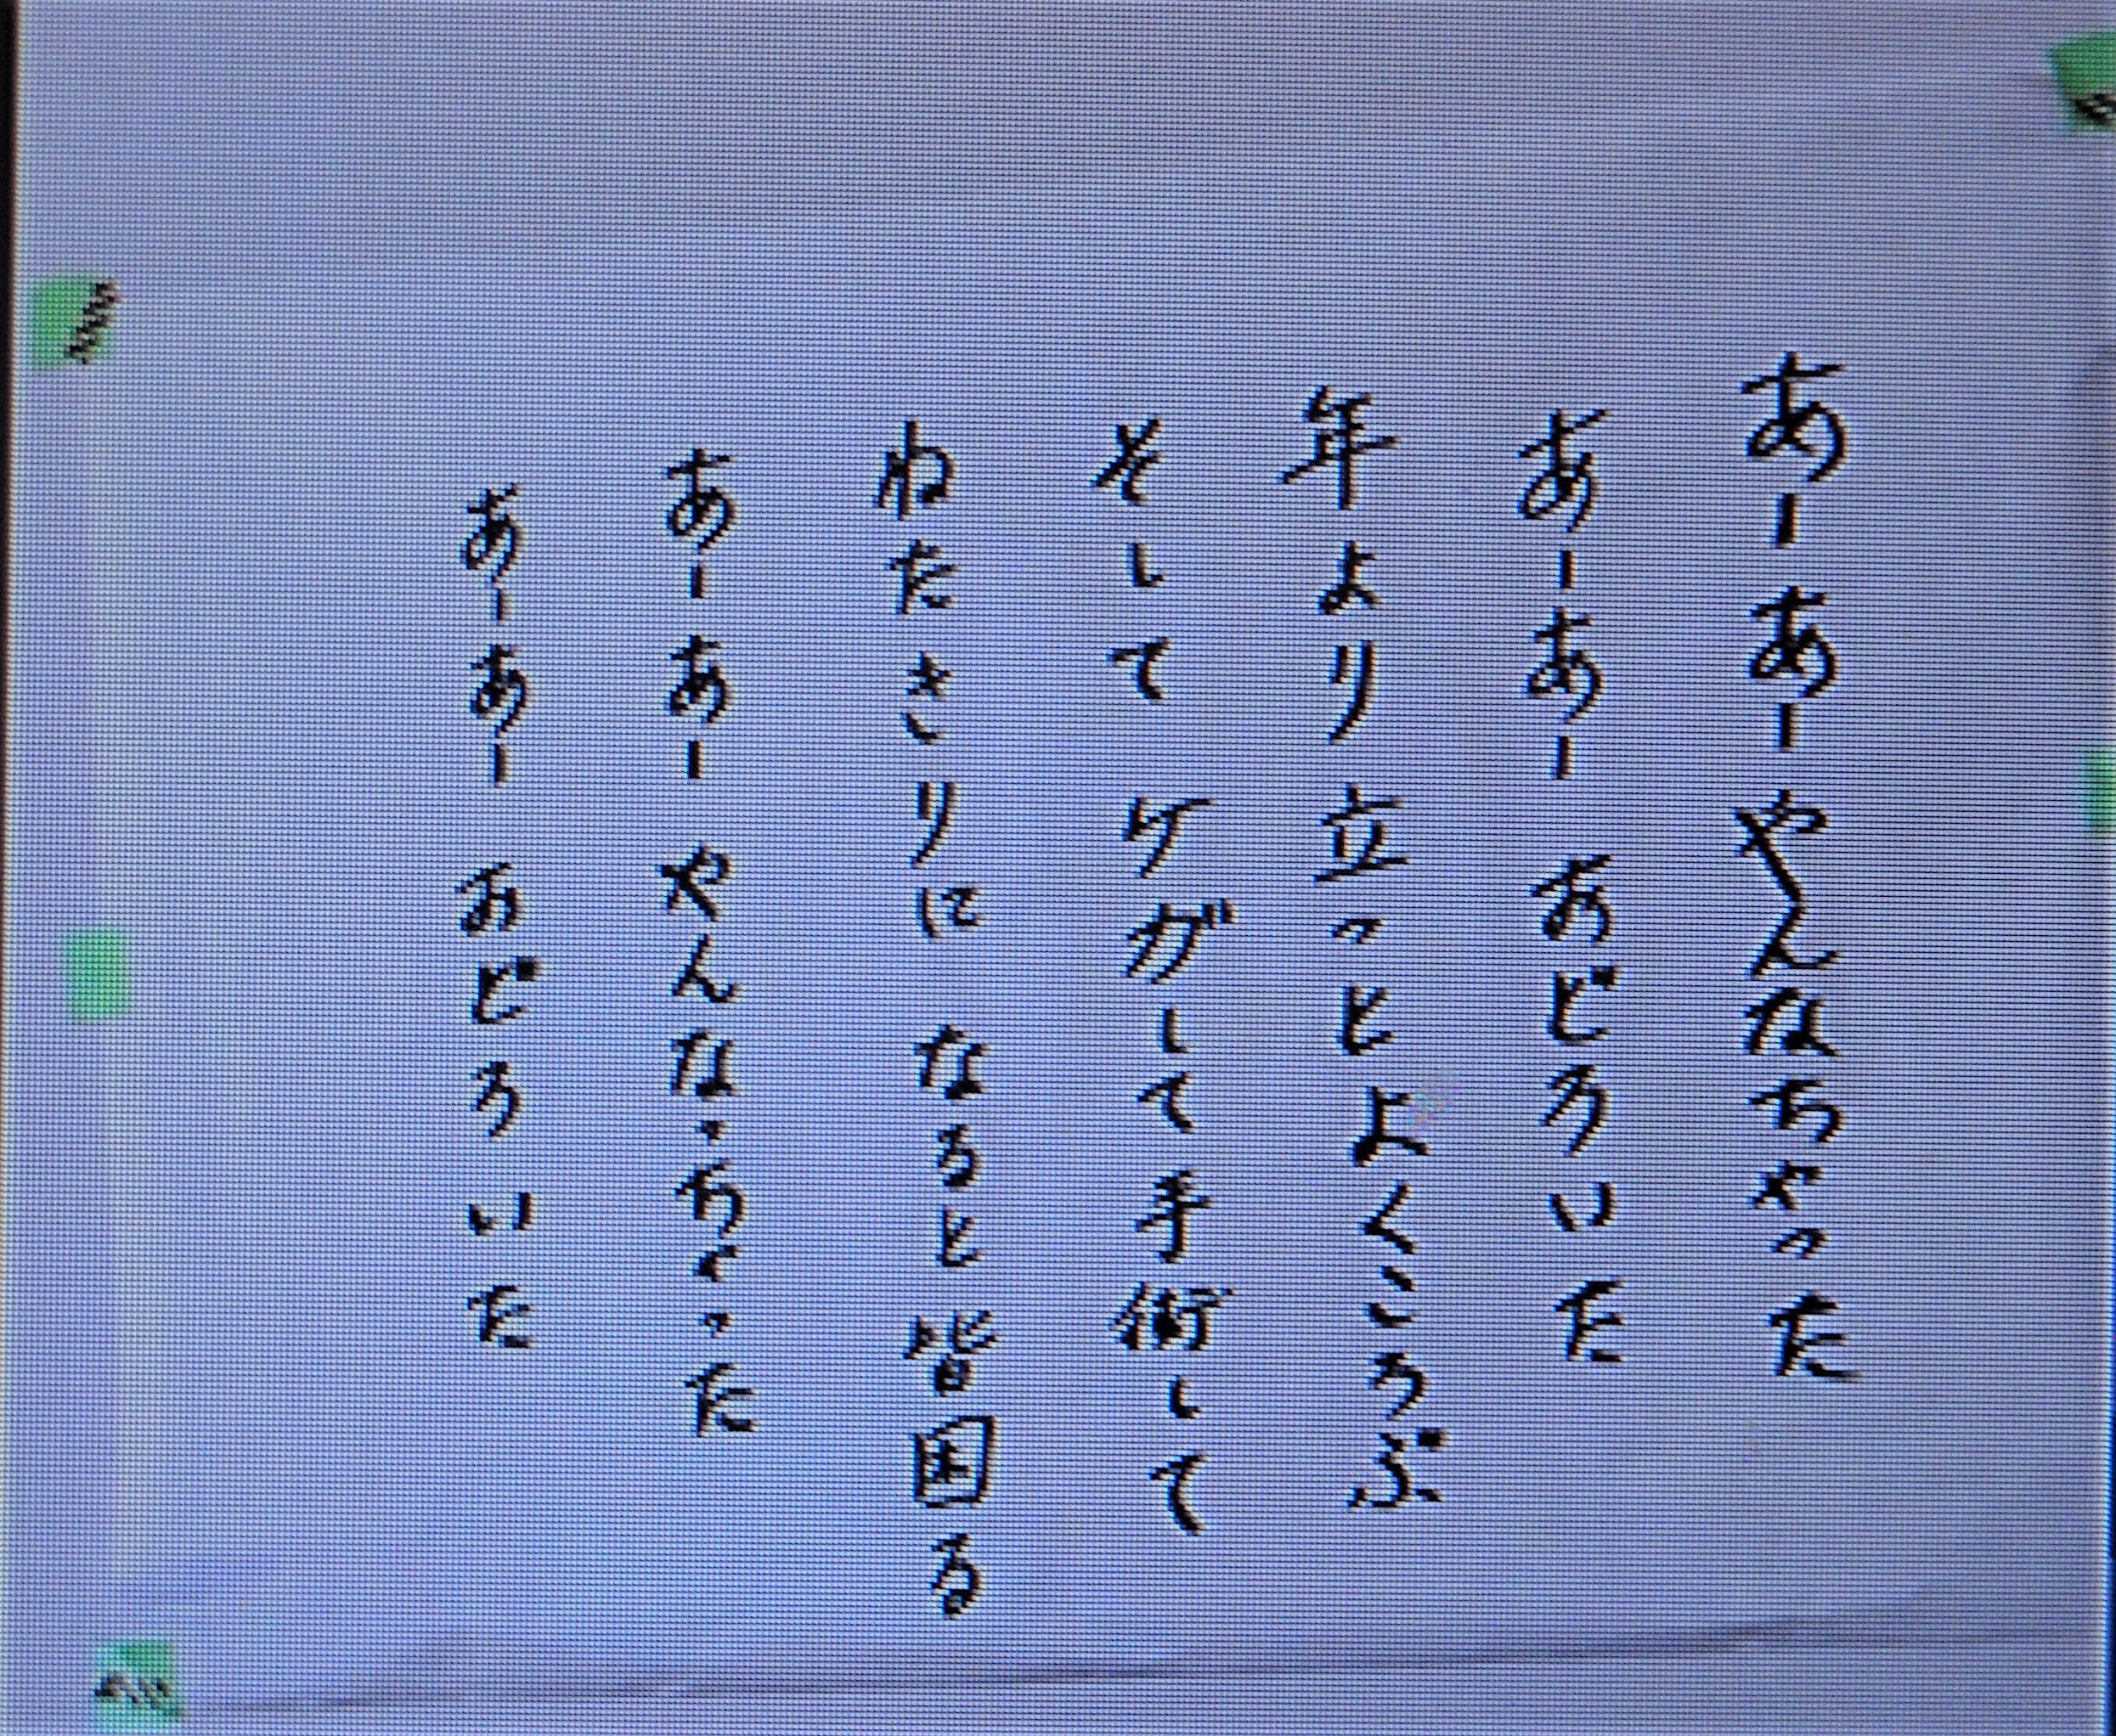 あーあー やんなちゃった
あーあー おどろいた
年より 立っとよくころぶ
そして ケガして手術して
ねたきりに なると皆困る
あーあー やんなっちゃった
あーあー おどろいた